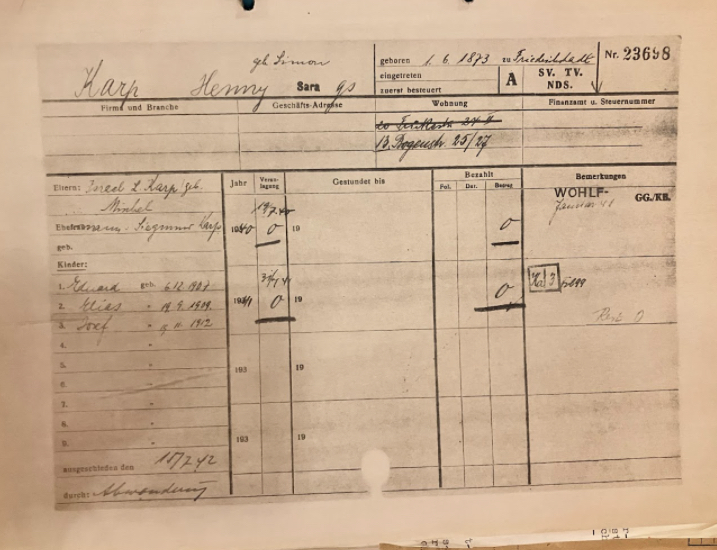 geb Simon
Karp Henny Sara gs
geboren 1. 6. 1873 zu Friedrichstadt
eingetreten
zuerst besteuert
A
SV. TV.
NDS.
Nr. 23698
Firma und Branche
Geschäfts-Adresse
Wohnung
Finanzamt u. Steuernummer
13. Bogenstr. 25/27
Eltern: L. Karp geb.
Ehefrau Siegmund Karp
geb.
Kinder:
1. Eduard geb. 6.12. 1907
2. Elias " 19. 9. 1909.
3. Josef " 9. 11. 1912
4. "
5. "
6. "
7. "
8. "
9. "
ausgeschieden den 15/7 42
durch: Abwanderung
Jahr
Veran-
lagung
Gestundet bis
Bezahlt
Fol. Dat. Betrag
Bemerkungen
1940 0 19 0
WOHLF-
GG./KB.
Januar 41
1941 0 19 0
3
193 19
193 19